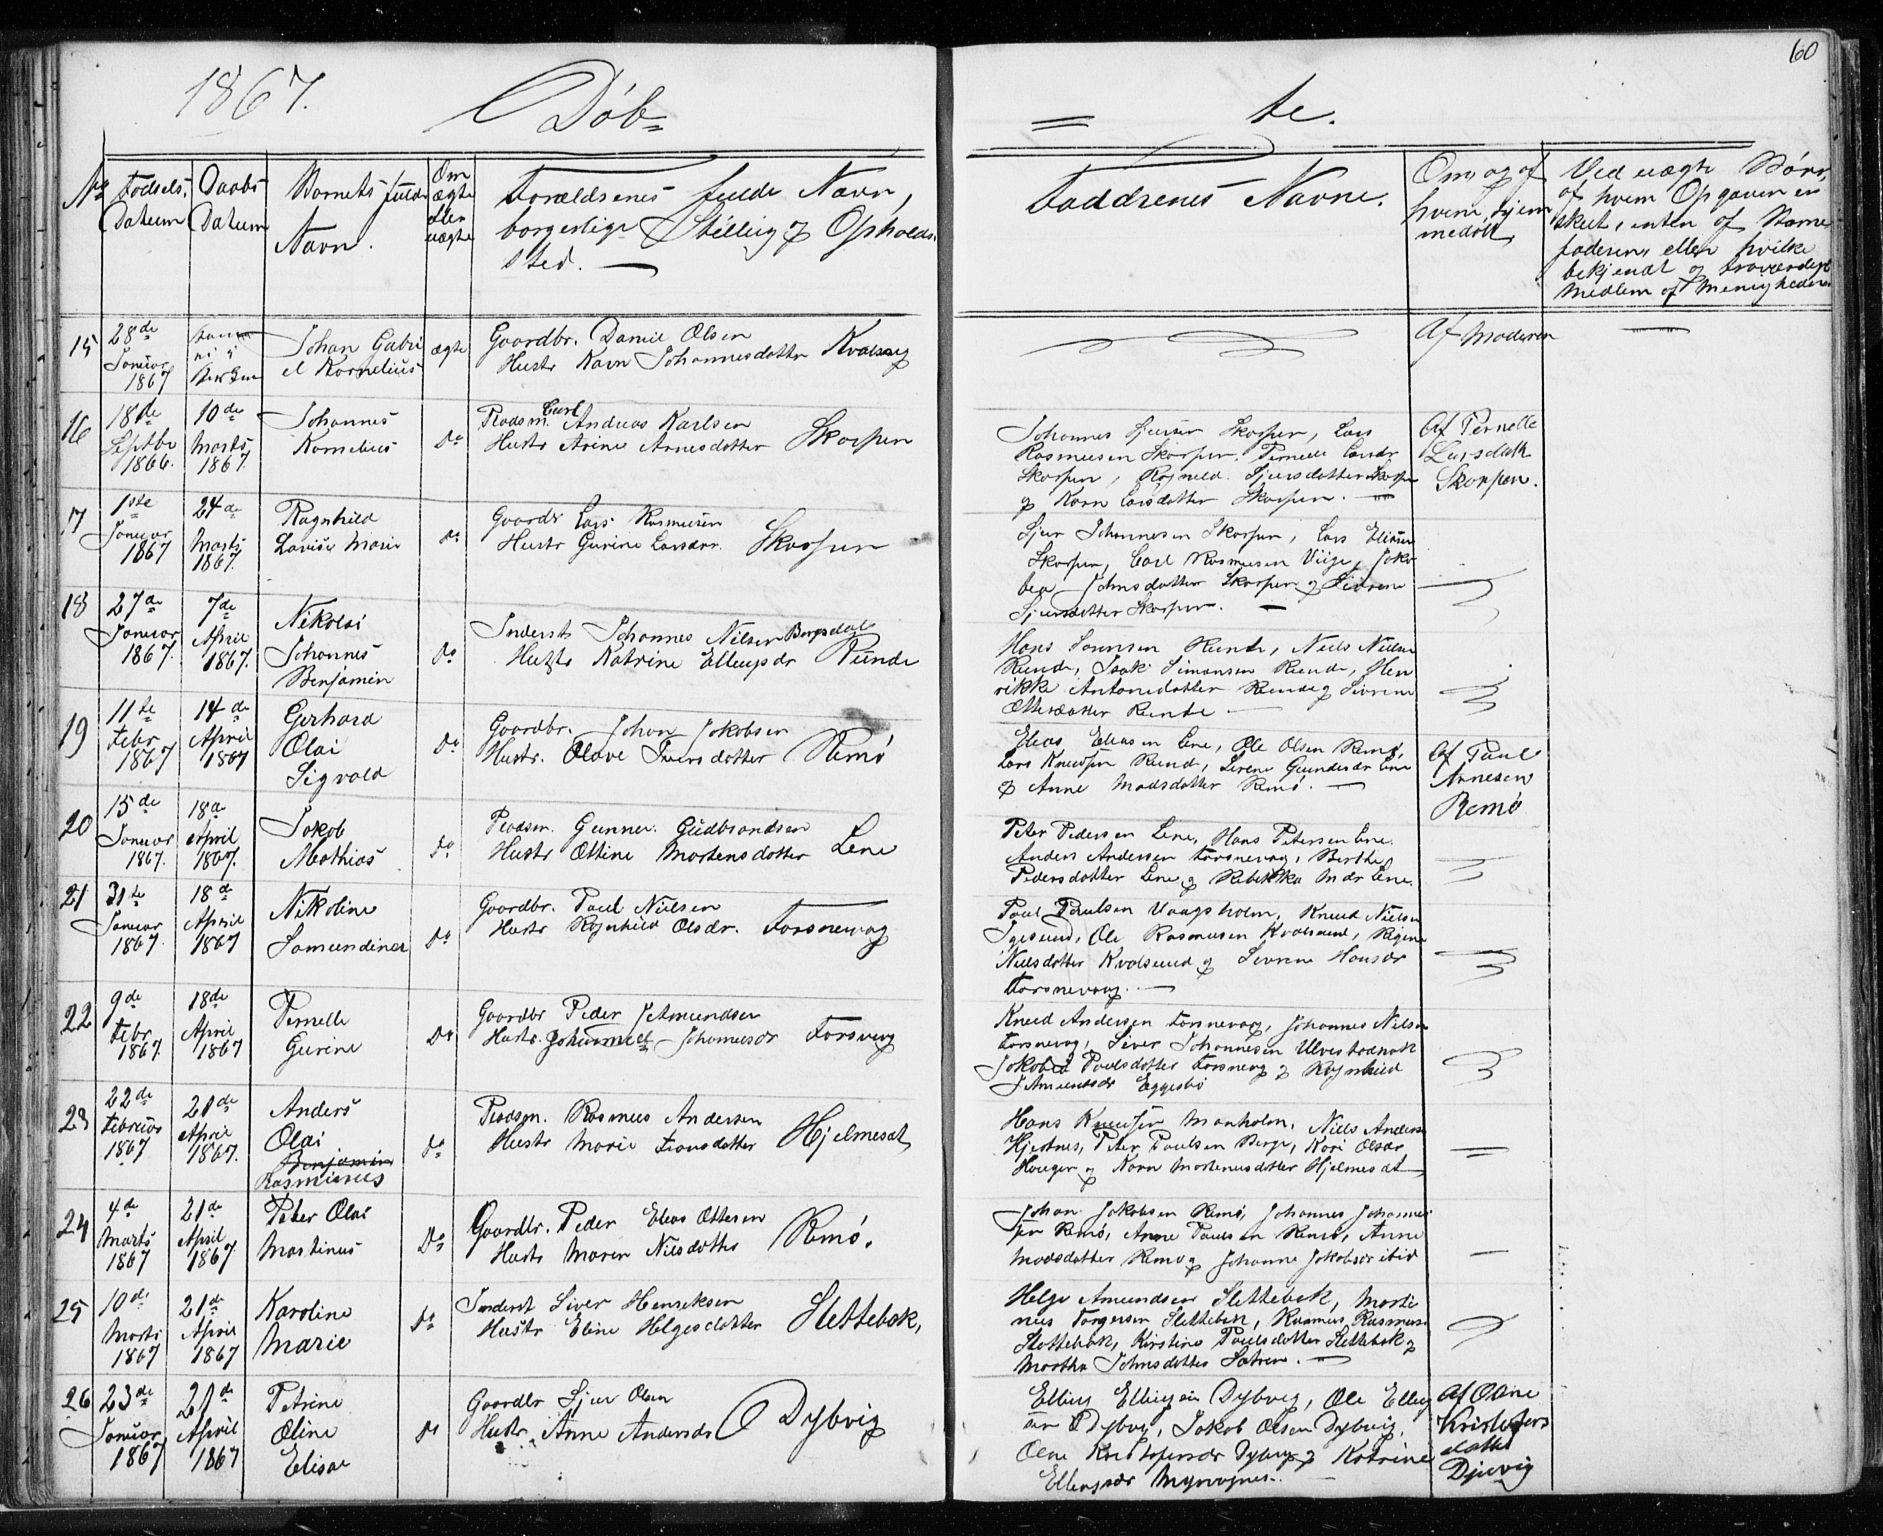 60
1867.
Døb=
= te.
No
Fødsels
Datum
Daabs
Datum
Barnets fulde
Navn.
Om
ægte
eller
uægte
Forældrenes fulde Navn,
borgerlige Stilling & Opholds
sted.
Faddrenes Navne.
Om og af
hvem hjem
medøbt
Ved uægte Børn,
af hvem Opgaven er
skeet, enten af Barne
faderen, eller hvilke
bekjendt og troværdigt
Medlem af Menigheden
15
28de
Januar
1867
Johan Gabri
el Kornelius
ægte
Gaardbr. Daniel Olsen
Hustr Karn Johannesdotter Kvalsvig
Af Moderen
16
18de
Septbr
1866.
10de
Marts
1867.
Johannes
Kornelius
Do
Pladsm. Carl Andreas Karlsen
Hustr Arine Arnesdotter Skorpen
Johannes Sjursen Skorpen, Lars
Rasmusen Skorpen, Pernelle Larsdr
Skorpen, Ragnild Sjursdotter Skorpen
& Karn Larsdotter Skorpen.
Af Pernelle
Larsdatt
Skorpen.
17
1ste
Januar
1867
24de
Marts
1867.
Ragnhild
Lovise Marie
Do
Gaardb Lars Rasmusen
Hustr Gurine Larsdr. Skorpen
Sjur Johannesen Skorpen, Lars Eliasen
Skorpen, Carl Rasmusen Viige, Jako
bea Johnsdotter Skorpen & Sivrine
Sjursdotter Skorpen.
18
27de
Januar
1867.
7de
April
1867.
Nikolai
Johannes
Benjamin
Do
Inderst Johannes Nilsen Bergsdal
Hustr Katrine Ellingsdr Runde
Hans Larensen Runde, Niels Nielsen
Runde, Isak Simonsen Runde, Hen
rikke Antonsdotter Runde & Sivrine
Ottesdatter Runde
19
11te
Febr
1867
14de
April
1867
Gerhard
Olai
Sigvald
Do
Gaardbr. Johan Jakobsen
Hustr. Olave Iversdotter Remø
Elias Eliasen Lene, Ole Olsen Remø,
Lars Knudsen Rund, Serene Gundersdr Lene
& Anne Madsdotter Remø.
Af Paul
Arnesen
Remø
20
15de
Januar
1867.
18de
April
1867.
Jakob
Mathias
Do
Pladsm. Gunner Gudbrandsen
Hustr Ottine Mortensdotter Lene
Peter Pedersen Lene, Hans Petersen Lene.
Anders Andersen Torsnevaag, Berthe
Pedersdotter Lene & Rebekka Mdr Lene.
21
31te
Januar
1867.
18de
April
1867
Nikoline
Samundinea
Do
Gaardbr. Paul Nielsen
Hustr Ragnhild Olsdr. Torsnevag
Paul Paulsen Vaagsholm, Knud Nielsen
Igesund, Ole Rasmusen Kvalsund, Regine
Nielsdotter Kvalsund & Sivrene Hansdr
Torsnevaag.
22
9de
Febr
1867.
18de
April
1867
Pernelle
Gurine
Do
Gaardbr Peder J Amundsen
Johannesdr Torsvaag
Knud Andersen Torsnevag, Johannes Nilsen
Torsnevag, Siver Johannesen Ulvestadnak
Jakobea Paulsdotter Torsnevag & Ragnhild
J Amundsdr Eggesbø
23
22de
Februar
1867
21de
April
1867.
Anders
Olai
Benjamin
Rasmunus
Do
Pladsm. Rasmus Andersen
Hustr Marie Hjelmesæt
Hans Knudsen Moxholm, Niels Anders
Hjertnes, Peter Paulsen Berge, Kari Olsdr
Hauger & Karn Mortensdotter Hjelmesæt
24
4de
Marts
1867
21de
April
1867.
Peter Olai
Martinus
Do
Gaardbr. Peder Elias Ottesen
Hustr Maren Nilsdotter Remø.
Johan Jakobsen Remø, Johannes Johannes
sen Remø, Anne Paulsen Remø, Anne
Madsdotter Remø & Johanne Jakobsdr ibid
25
10de
Marts
1867
21de
April
1867
Karoline
Marie
Do
Inderst Siver Henriksen
Hustr Eline Helgesdotter Slettebak,
Helge Amundsen Slettebak, Marti
nus Torgersen Slettebak, Rasmus Rasmus
Slettebak, Kirstine Paulsdotter Slettebak &
Martha Johnsdotter Sætren.
26
23de
Januar
1867
21de
April
1867
Petrine
Oline
Elisae
Do
Gaardbr Sjur Olsen
Hustr. Anne Andersdr Dybvig
Elling Ellingsen Dybvig, Ole Elling
sen Dybvig, Jakob Olsen Dybvig,
Oline Kristofersdr Dybvig & Katrine
Ellingsdr Myrvognes.
Af Oline
Kristofers
datter
Djuvig